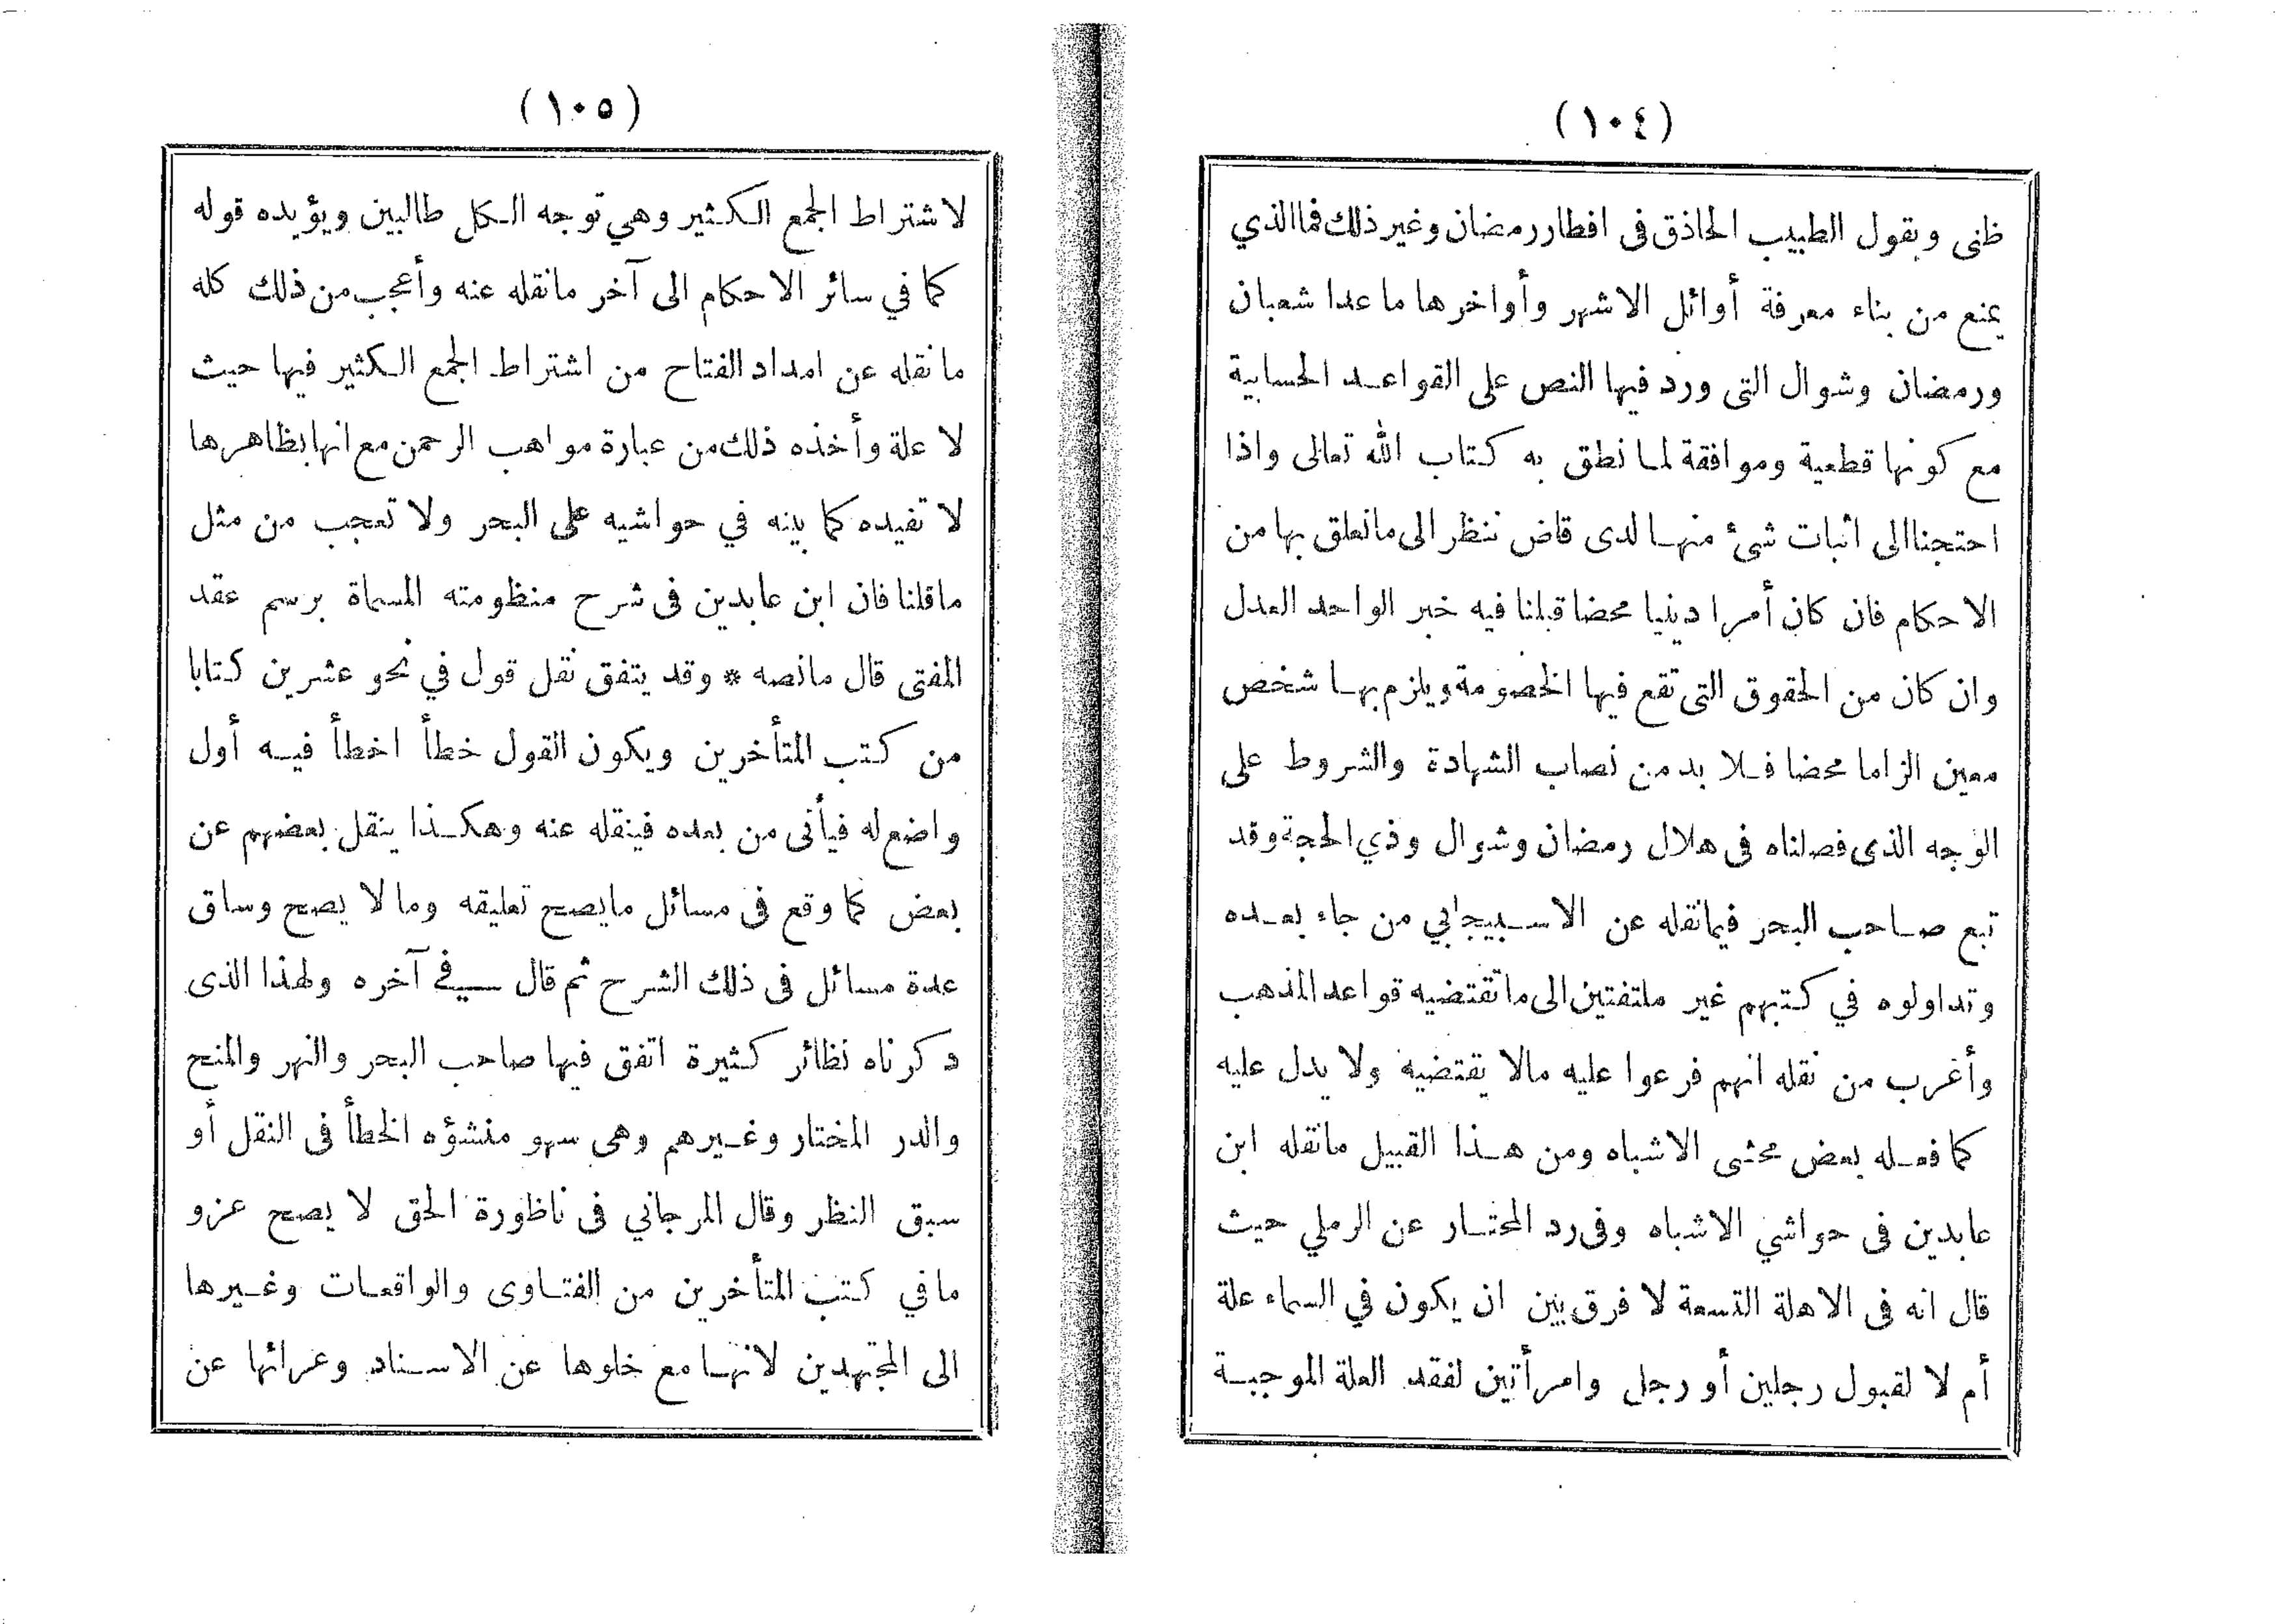 (١٠٤)
ظنى وبقول الطبيب الحاذق فى افطار رمضان وغير ذلك فما الذي
يمنع من بناء معرفة أوائل الاشهر وأواخرها ما عدا شعبان
ورمضان وشوال التى ورد فيها النص على القواعد الحسابية
مع كونها قطعية وموافقة لما نطق به كتاب الله تعالى واذا
احتجنا الى اثبات شئ منها لدى قاض ننظر الى ما تعلق بها من
الاحكام فان كان أمرا دينيا محضا قبلنا فيه خبر الواحد العدل
وان كان من الحقوق التى تقع فيها الخصومة ويلزم بها شخص
معين الزاما محضا فلا بد من نصاب الشهادة والشروط على
الوجه الذى فصلناه فى هلال رمضان وشوال وذي الحجة وقد
تبع صاحب البحر فيما نقله عن الاسبيجابي من جاء بعده
وتداولوه في كتبهم غير ملتفتين الى ما تقتضيه قواعد المذهب
وأغرب من نقله انهم فرعوا عليه مالا يقتضيه ولا يدل عليه
كما فعله بعض محشى الاشباه ومن هذا القبيل مانقله ابن
عابدين فى حواشي الاشباه وفى رد المحتار عن الرملي حيث
قال انه فى الاهلة التسعة لا فرق بين ان يكون في السماء علة
أم لا لقبول رجلين أو رجل وامرأتين لفقد العلة الموجبة
(١٠٥)
لاشتراط الجمع الكثير وهي توجه الكل طالبين ويؤيده قوله
كما في سائر الاحكام الى آخر مانقله عنه وأعجب من ذلك كله
مانقله عن امداد الفتاح من اشتراط الجمع الكثير فيها حيث
لا علة وأخذه ذلك من عبارة مواهب الرحمن مع انها بظاهرها
لا تفيده كما بينه في حواشيه على البحر ولا تعجب من مثل
ماقلنا فان ابن عابدين فى شرح منظومته المسماة برسم عقد
المفتى قال مانصه * وقد يتفق نقل قول في نحو عشرين كتابا
من كتب المتأخرين ويكون القول خطأ اخطأ فيه أول
واضع له فيأتى من بعده فينقله عنه وهكذا ينقل بعضهم عن
بعض كما وقع فى مسائل مايصح تعليقه وما لا يصح وساق
عدة مسائل فى ذلك الشرح ثم قال في آخره ولهذا الذى
ذكرناه نظائر كثيرة اتفق فيها صاحب البحر والنهر والمنح
والدر المختار وغيرهم وهى سهو منشؤه الخطأ فى النقل أو
سبق النظر وقال المرجاني فى ناظورة الحق لا يصح عزو
مافي كتب المتأخرين من الفتاوى والواقعات وغيرها
الى المجتهدين لانها مع خلوها عن الاسناد وعرائها عن